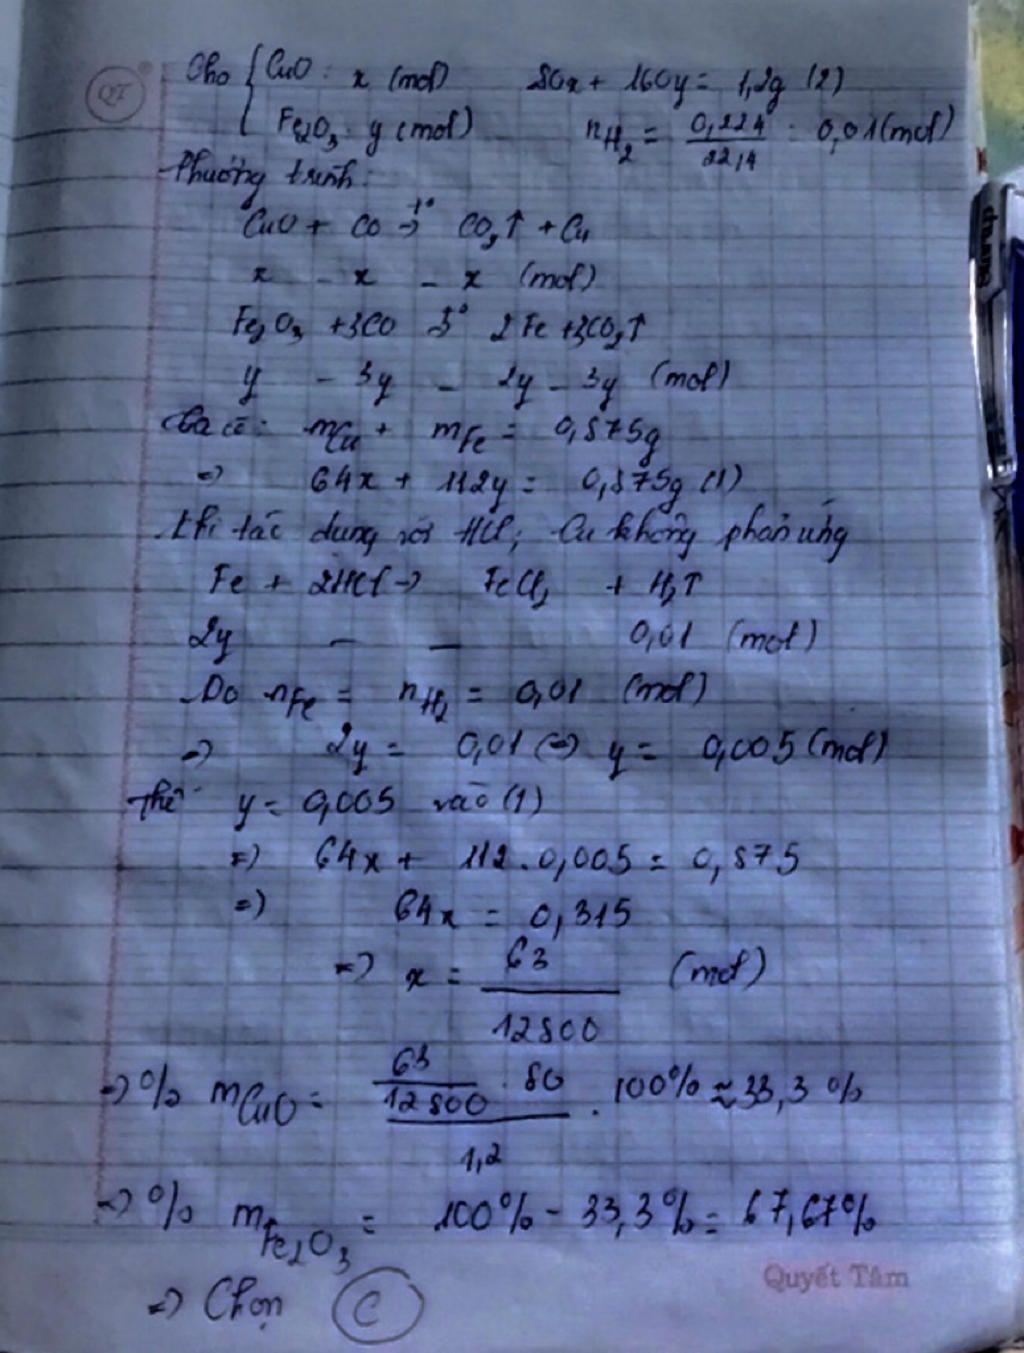 QT
Cho { CuO : x (mol) 80x + 160y = 1,2g (2)
Fe2O3 : y (mol) nH2 = 0,224/22,4 = 0,01 (mol)
Phương trình:
CuO + CO t°→ CO2↑ + Cu
x - x - x (mol)
Fe2O3 + 3CO t°→ 2Fe + 3CO2↑
y - 3y - 2y - 3y (mol)
Ta có: mCu + mFe = 0,875g
=> 64x + 112y = 0,875g (1)
Khi tác dụng với HCl, Cu không phản ứng
Fe + 2HCl → FeCl2 + H2↑
2y - - 0,01 (mol)
Do nFe = nH2 = 0,01 (mol)
=> 2y = 0,01 <=> y = 0,005 (mol)
Thế y = 0,005 vào (1)
=> 64x + 112.0,005 = 0,875
=> 64x = 0,315
=> x = 63/12800 (mol)
=> % mCuO = (63/12800 . 80)/1,2 . 100% ≈ 33,3 %
=> % mFe2O3 = 100% - 33,3% = 67,67%
Quyết Tâm
=> Chọn C